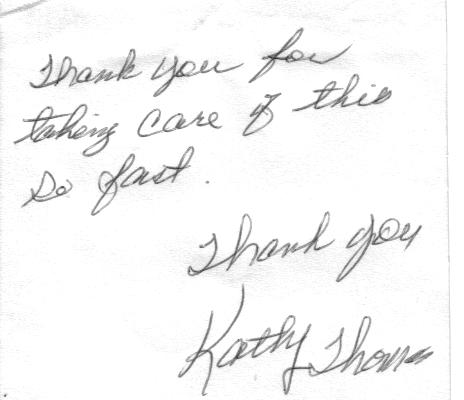 Thank you for
taking care of this
so fast.
Thank you
Kathy Thomas